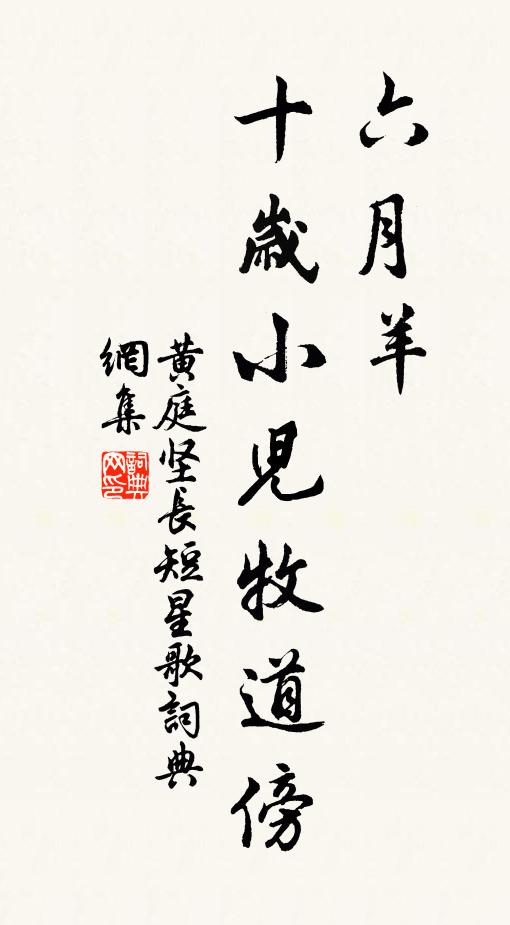 六月羊
十歲小児牧道傍
黄庭坚長短星歌詞典
網集
詞典网印